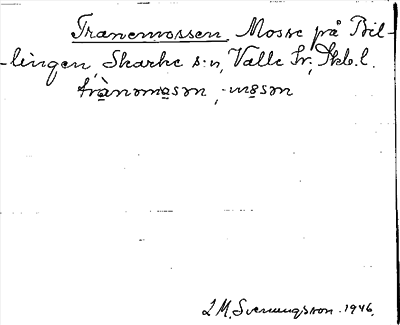 Tranemossen, Mosse på Bil-
-lingen, Skarke s:n, Valle hr, Skb.l.
trànəmɷsən, -mɷsən
L M. Svenungsson. 1946.